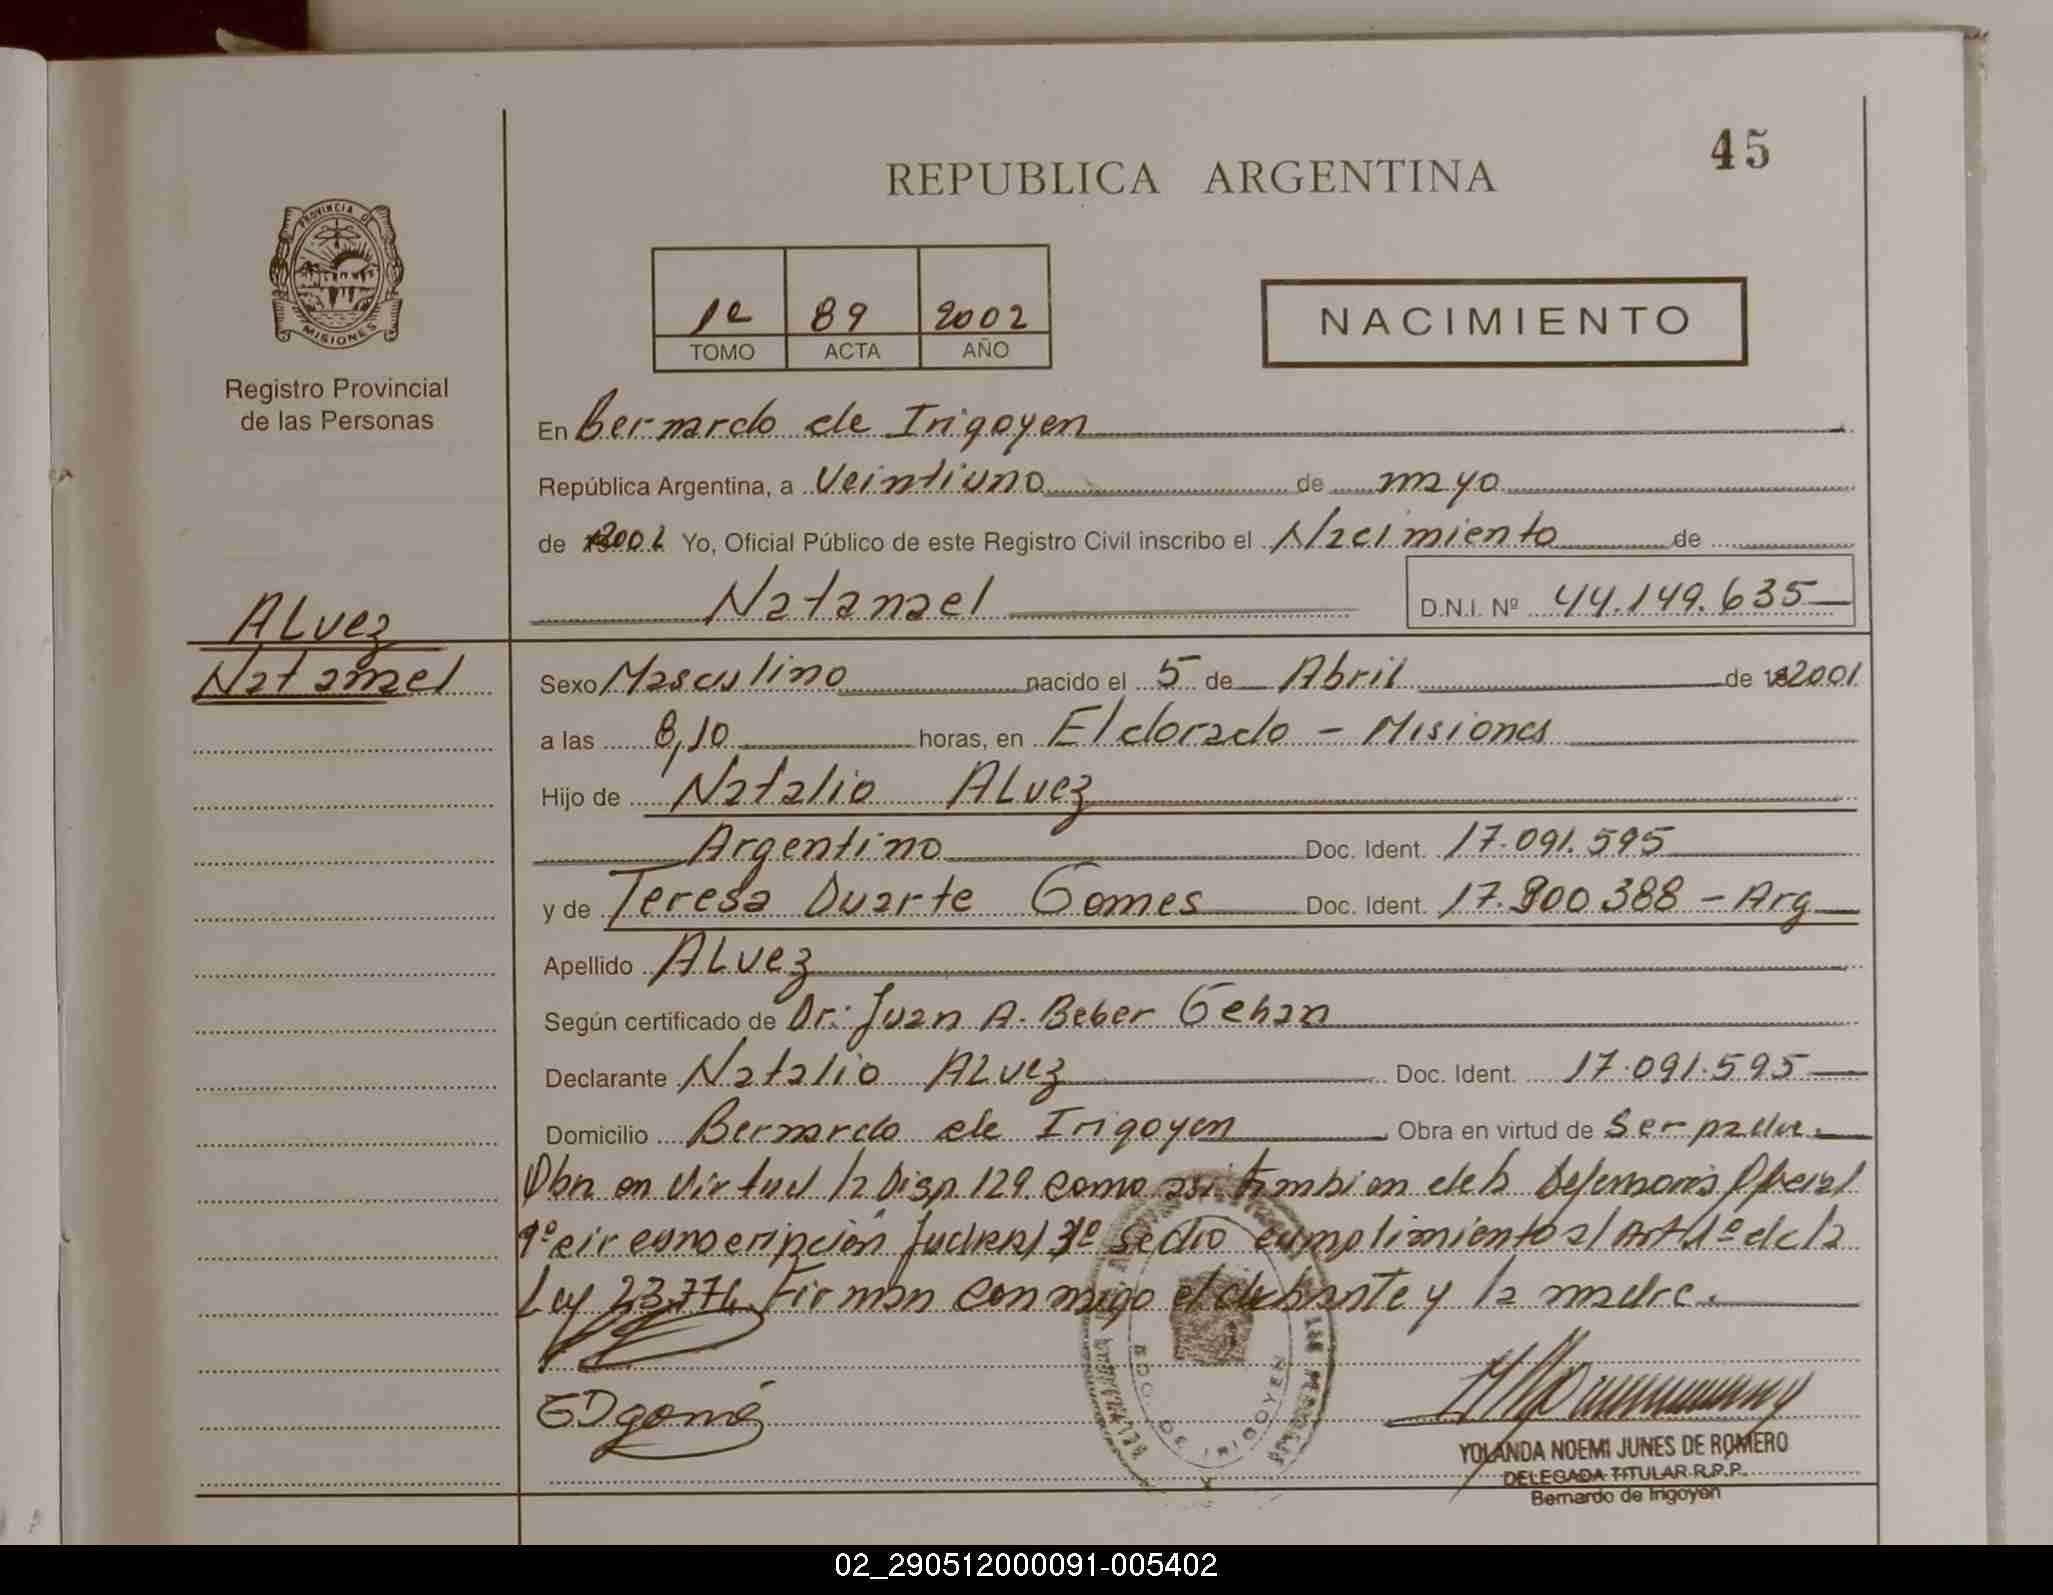 45
REPUBLICA ARGENTINA
PROVINCIA DE
MISIONES
Registro Provincial
de las Personas
1º 89 2002
TOMO ACTA AÑO
NACIMIENTO
En Bernardo de Irigoyen
República Argentina, a Veintiuno de mayo
de 2002 Yo, Oficial Público de este Registro Civil inscribo el Nacimiento de
Natanael D.N.I. Nº 44.149.635
ALvez
Natanael
Sexo Masculino nacido el 5 de Abril de 2001
a las 8,10 horas, en Eldorado - Misiones
Hijo de Natalio ALvez
Argentino Doc. Ident. 17.091.595
y de Teresa Duarte Gomes Doc. Ident. 17.900.388 - Arg
Apellido ALvez
Según certificado de Dr. Juan A. Beber Gehan
Declarante Natalio ALvez Doc. Ident. 17.091.595
Domicilio Bernardo de Irigoyen Obra en virtud de Ser padre.
Obra en Virtud la Disp. 129. como asi tambien de la Defensoria Oficial
1º circunscripción Judicial 3º se dio cumplimiento al Art 1º de la
Ley 23.776. Firman conmigo el declarante y la madre.
BDO. DE IRIGOYEN
YOLANDA NOEMI JUNES DE ROMERO
DELEGADA TITULAR R.P.P.
Bernardo de Irigoyen
02_290512000091-005402